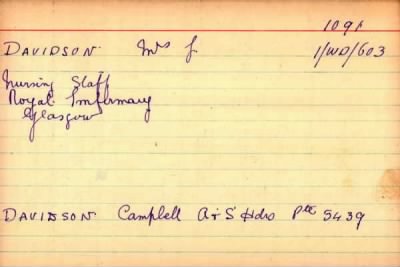 109A
DAVIDSON Mrs J 1/WD/603
Nursing Staff
Royal Infirmary
Glasgow
DAVIDSON Campbell A & S' Hdrs Pte 5439